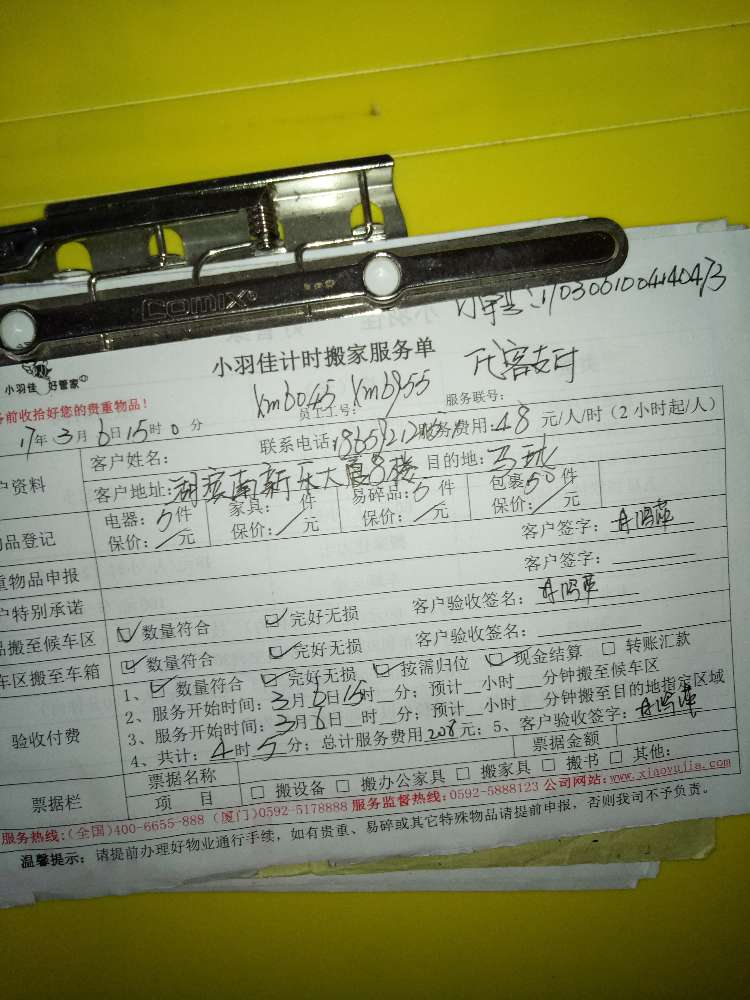 comix
小羽佳 好管家
小羽佳计时搬家服务单
代客支付
务前收拾好您的贵重物品!
员工工号: xm6045 xm6955 服务联号:
17年3月6日15时0分
联系电话: 服务费用:48元/人/时(2小时起/人)
户资料
客户姓名:
客户地址: 目的地:
品登记
电器:5件 家具:件 易碎品:5件 包裹50件
保价:/元 保价:/元 保价:/元 保价:/元
重物品申报 客户签字:
户特别承诺 客户签字:
品搬至候车区 数量符合 完好无损 客户验收签名:
车区搬至车箱 数量符合 完好无损 客户验收签名:
验收付费
1、数量符合 完好无损 按需归位 现金结算 转账汇款
2、服务开始时间:3月6日15时 分;预计 小时 分钟搬至候车区
3、服务开始时间:3月6日 时 分;预计 小时 分钟搬至目的地指定区域
4、共计:4时5分;总计服务费用208元;5、客户验收签字:
票据栏
票据名称 票据金额
项 目 搬设备 搬办公家具 搬家具 搬书 其他:
服务热线:(全国)400-6655-888 (厦门)0592-5178888 服务监督热线:0592-5888123 公司网站:www.xiaoyujia.com
温馨提示:请提前办理好物业通行手续,如有贵重、易碎或其它特殊物品请提前申报,否则我司不予负责。